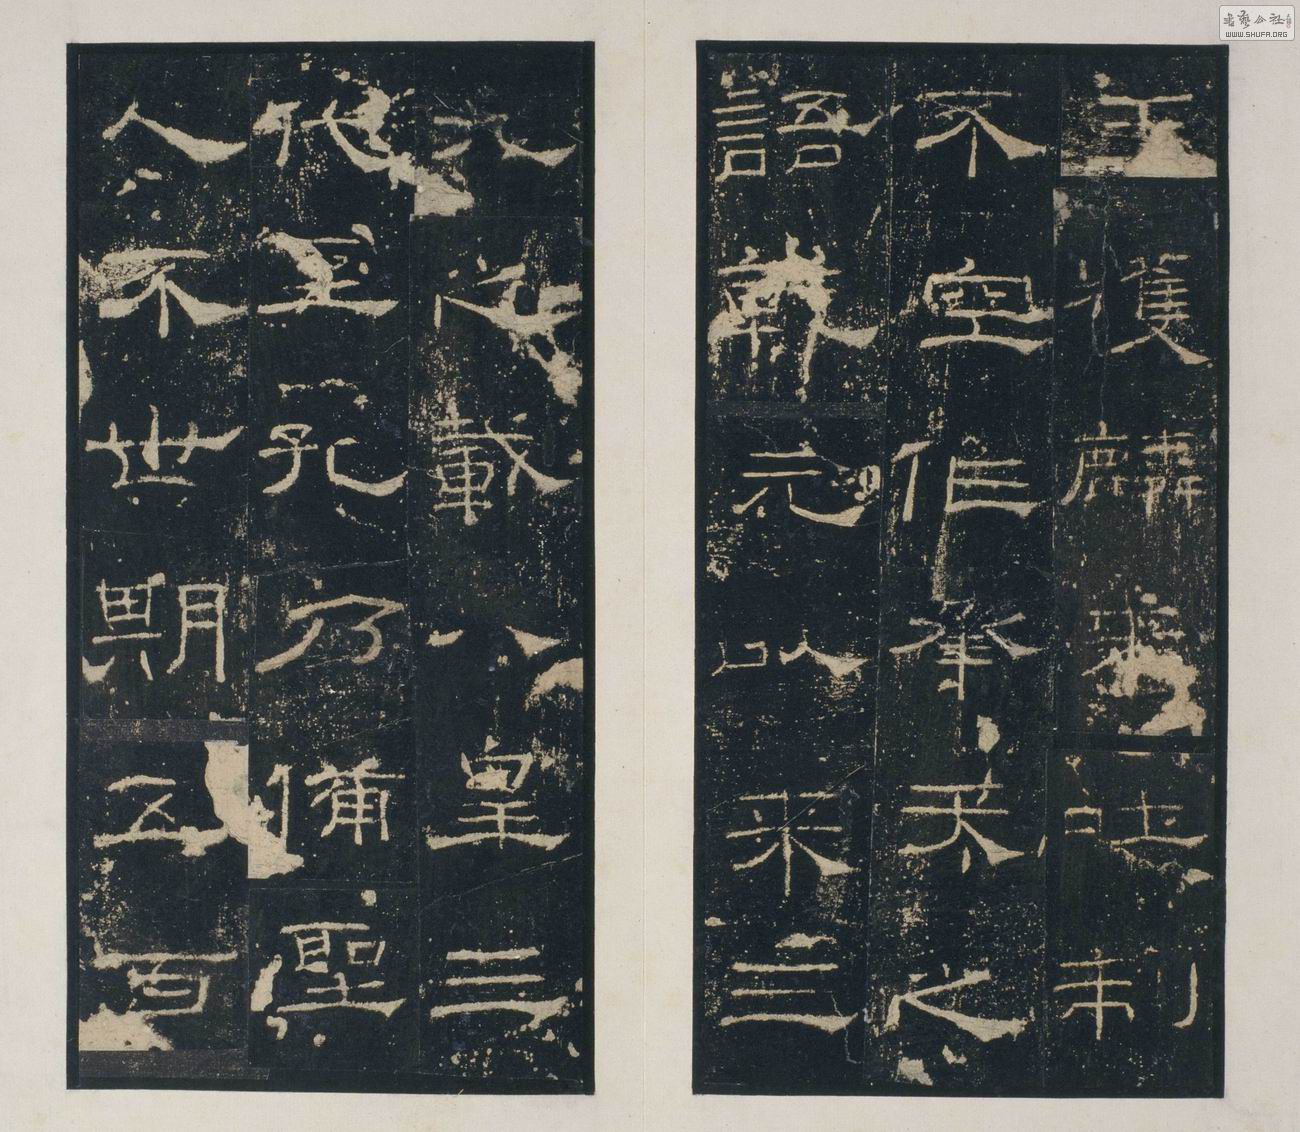 王獲麟來吐制
不空作承天之
語乾元以來三
九之載八皇三
代至孔乃備聖
人不世期五百
書藝公社
WWW.SHUFA.ORG